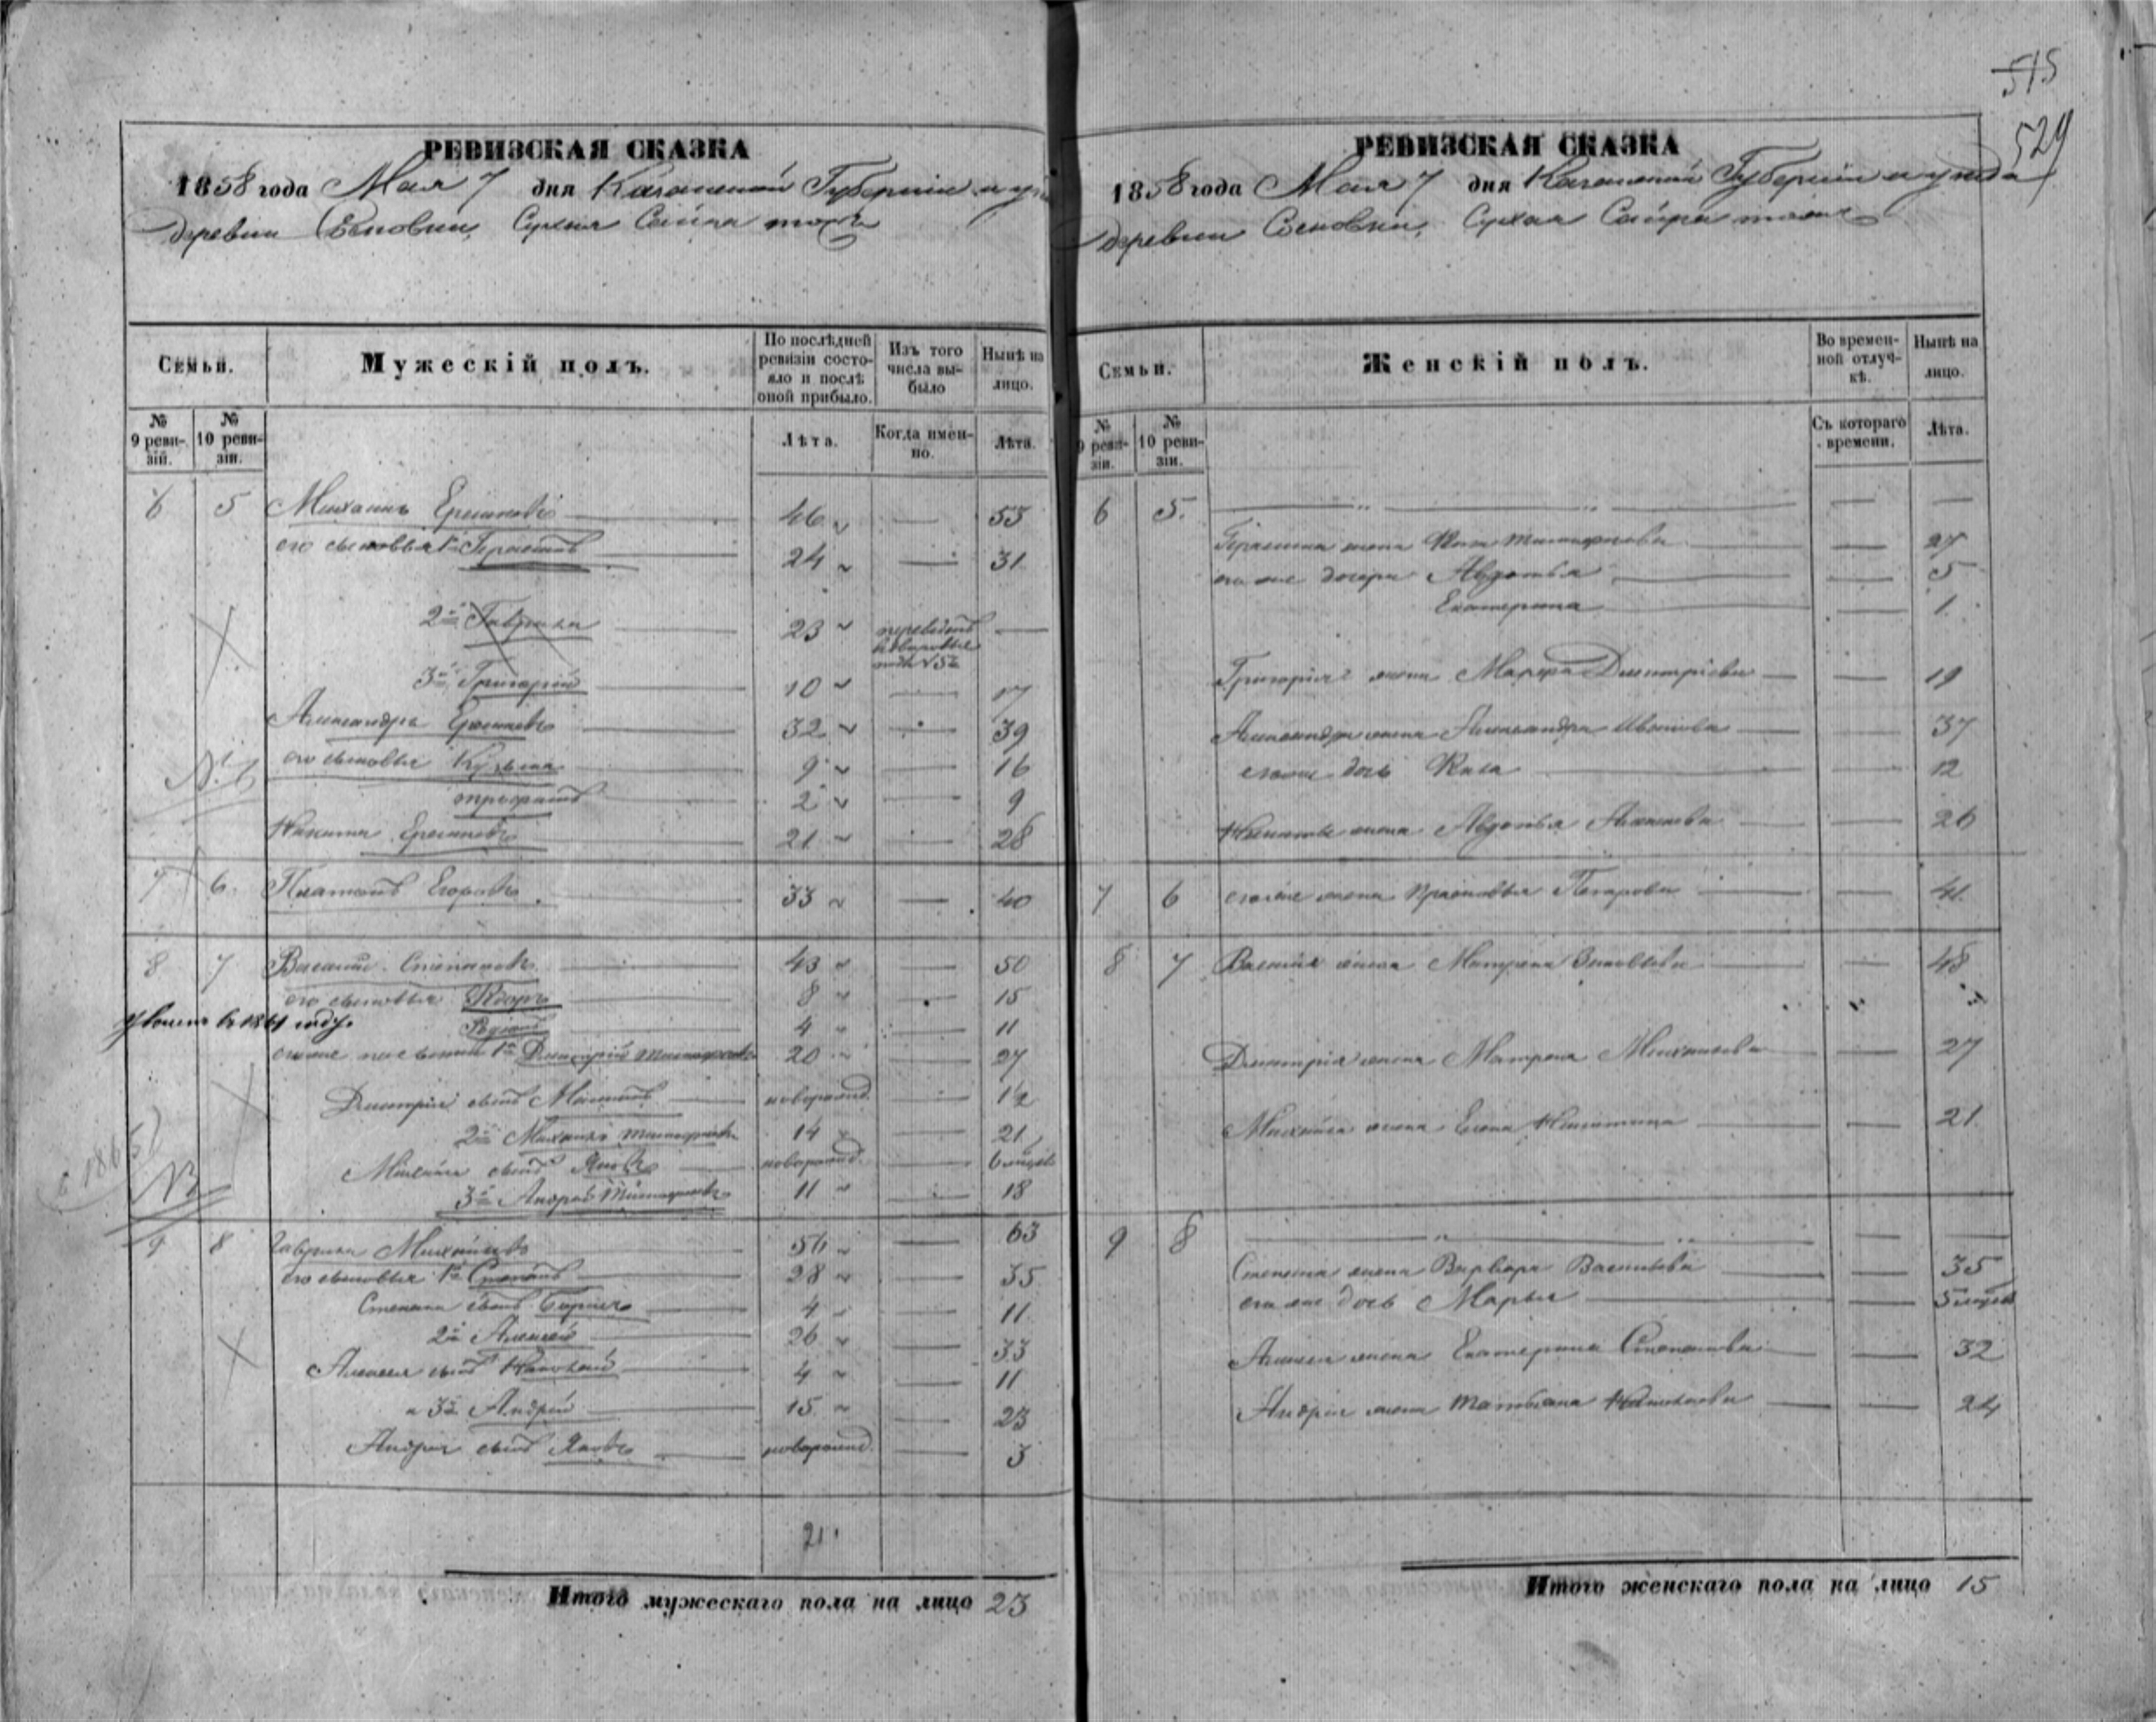 515
529
РЕВИЗСКАЯ СКАЗКА
1858 года Мая 7 дня Казанской Губернии и
деревни Сосновки, Сухая Сайра тожъ
Семьи.
Мужескій полъ.
По послѣдней ревизіи состояло и послѣ оной прибыло.
Изъ того числа выбыло
Нынѣ на лицо.
№ 9 ревизій.
№ 10 ревизіи.
Лѣта.
Когда именно.
Лѣта.
6 5 Михаилъ 46 — 53
его сыновья 1й Герасимъ 24 — 31
2й Гаврила 23 переведенъ —
3й Григорій 10 — 17
Александръ 32 — 39
его сыновья Кузьма 9 — 16
Трефилъ 2 — 9
Никита 21 — 28
№
7 6 Платонъ Егоровъ 33 — 40
8 7 Василій Степановъ 43 — 50
его сыновья 8 — 15
въ 1861 году.
Родіонъ 4 — 11
его же пасынки 1й Дмитрій Тимофеевъ 20 — 27
Дмитрія сынъ новорожд. — 1/2
2й Михаилъ Тимофеевъ 14 — 21
Михайла сынъ Яковъ новорожд. — 6
3й Андрей Тимофеевъ 11 — 18
9 8 Гаврила Михайловъ 56 — 63
его сыновья 1й Степанъ 28 — 35
Степана сынъ 4 — 11
2й Алексей 26 — 33
Алексея сынъ Николай 4 — 11
3й Андрей 15 — 23
Андрея сынъ Яковъ новорожд. — 3
21
Итого мужескаго пола на лицо 23
РЕВИЗСКАЯ СКАЗКА
1858 года Мая 7 дня Казанской Губерніи и уезда
деревни Сосновки, Сухая Сайра тожъ
Семьи.
Женскій полъ.
Во временной отлучкѣ.
Нынѣ на лицо.
№ 9 ревизіи.
№ 10 ревизіи.
Съ котораго времени.
Лѣта.
6 5. — — —
Герасима жена Тимофеева — 27
его же дочери Авдотья — 5
Екатерина — 1
Григорія жена Марфа Дмитріева — 19
Александра жена Александра Иванова — 37
его же дочь — 12
Никиты жена Авдотья — 26
7 6 его же жена Прасковья Петрова — 41
8 7 Василія жена Матрена — 48
Дмитрія жена Матрена Михайлова — 27
Михайла жена Елена Никитина — 21
9 8 — — —
Степана жена Варвара Васильева — 35
его же дочь Марья — 5
Алексея жена Екатерина Степанова — 32
Андрея жена Татьяна Николаева — 24
Итого женскаго пола на лицо 15